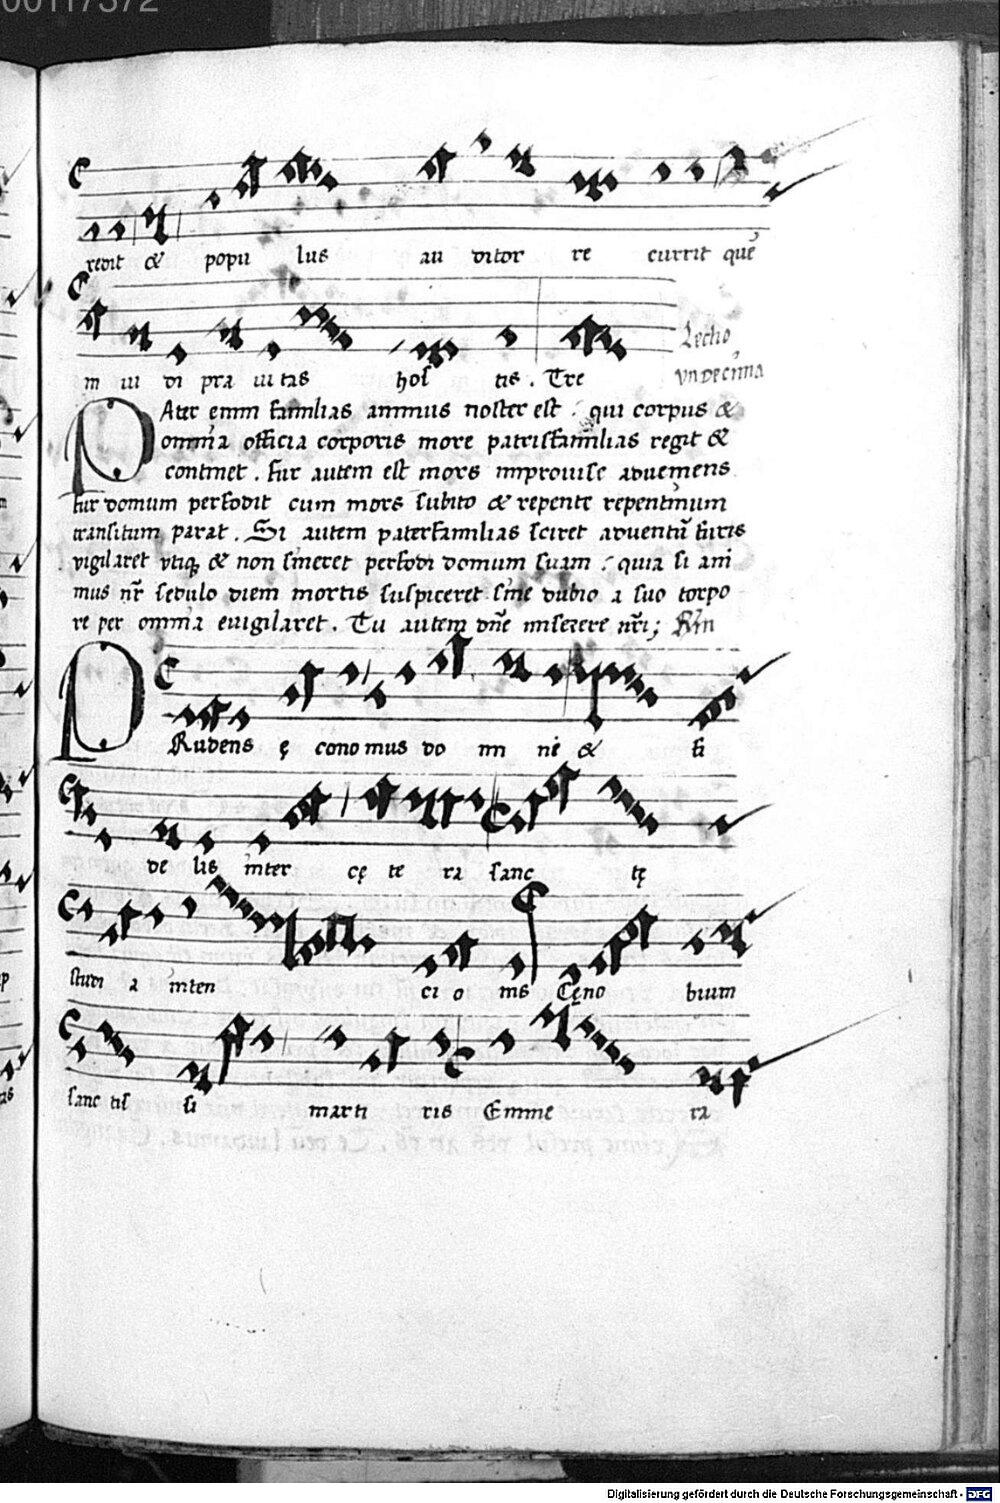 00117372
redit & popu lus au ditor re currit quē
m iu di pra ui tas hos tis . Tre
Lectio
vndecima
PAter enim familias animus noster est : qui corpus &
omnia officia corporis more patrisfamilias regit &
continet . fur autem est mors improuise adueniens
fur domum perfodit cum mors subito & repente repentinum
transitum parat . Si autem paterfamilias sciret aduentū furis
vigilaret vtiqꝫ & non sineret perfodi domum suam : quia si ani
mus nr̄ sedulo diem mortis suspiceret sine dubio a suo torpo
re per omnia euigilaret . Tu autem dn̄e miserere nr̄i;
PRudens ę cono mus do mi ni & fi
de lis inter cę te ra sanc tę
studi a inten ci o nis Cęno bium
sanc tis si marti ris Emme ra
Digitalisierung gefördert durch die Deutsche Forschungsgemeinschaft - DFG